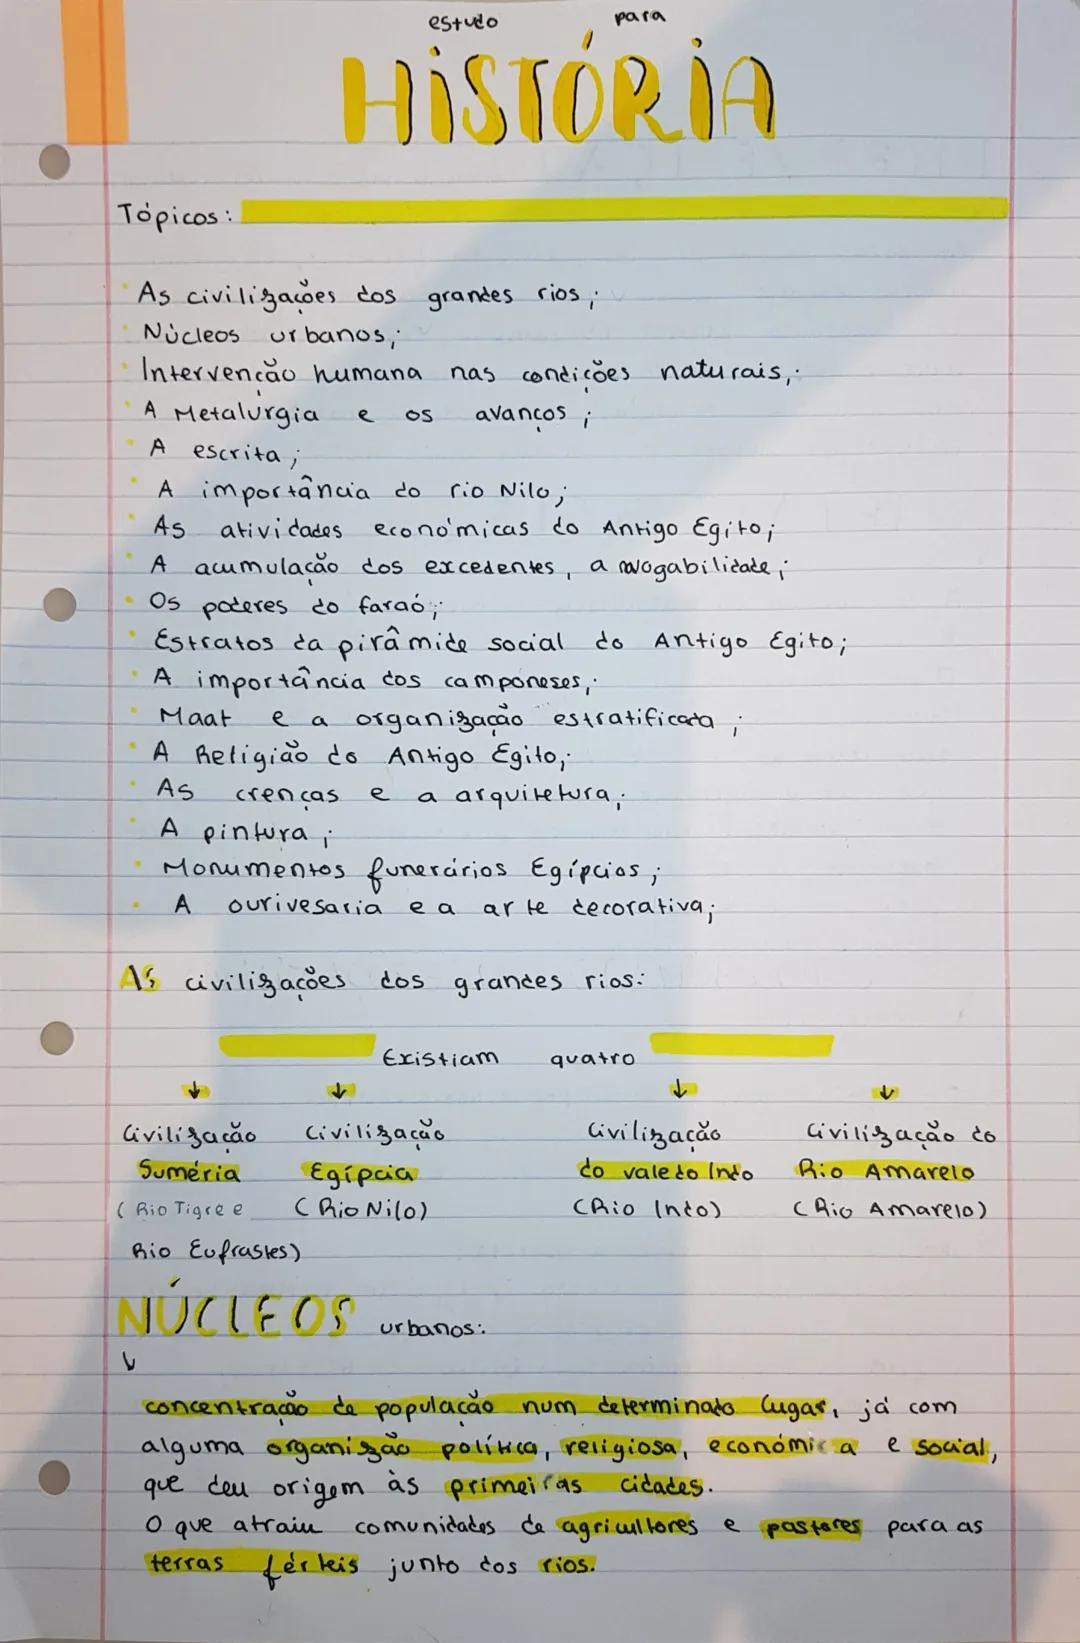 estudo para
HISTÓRIA
Tópicos:
As civilizações dos grandes rios;
Núcleos urbanos;
Intervenção humana nas condições naturais;
A Metalurgia e os avanços;
A escrita;
A importância do rio Nilo;
As atividades económicas do Antigo Egito;
A acumulação dos excedentes, a navogabilidade;
Os poderes do faraó;
Estratos da pirâmide social do Antigo Egito;
A importância dos camponeses;
Maat e a organização estratificada;
A Religião do Antigo Egito;
As crenças e a arquitetura;
A pintura;
Monumentos funerários Egípcios;
A ourivesaria e a arte decorativa;
As civilizações dos grandes rios:
Existiam quatro
↓ ↓ ↓ ↓
Civilização Civilização Civilização Civilização do
Suméria Egípcia do vale do Indo Rio Amarelo
(Rio Tigre e (Rio Nilo) (Rio Indo) (Rio Amarelo)
Rio Eufrastes)
NÚCLEOS urbanos:
concentração de população num determinado lugar, já com
alguma organizsão política, religiosa, económica e social,
que deu origem às primeiras cidades.
O que atraiu comunidades de agricultores e pastores para as
terras férteis junto dos rios.